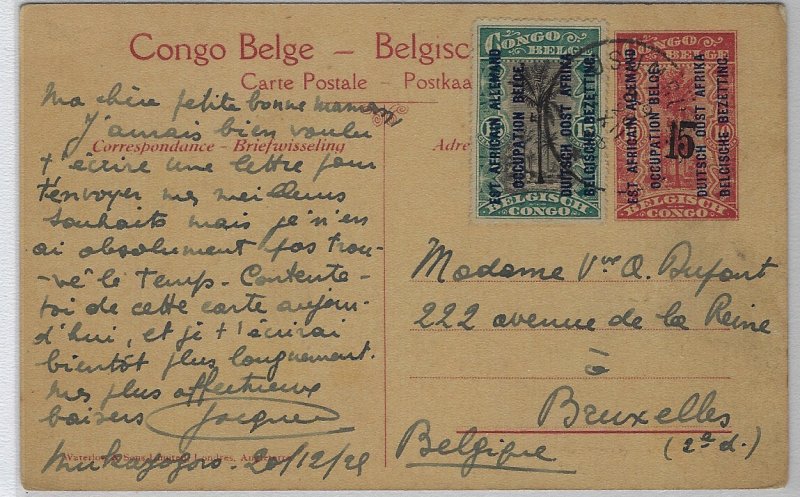 Congo Belge – Belgisc
Carte Postale - Postkaa
Correspondance - Briefwisseling
Adre
Ma chère petite bonne maman
J'amais bien voulu
t'écrire une lettre pour
t'envoyer mes meilleurs
souhaits mais je n'en
ai absolument pas trou-
-vé le temps. Contente-
toi de cette carte aujour-
d'hui, et je t'écrirai
bientôt plus longuement.
Mes plus affectueux
baisers Jacques
20/12/25
Waterlow & Sons Limited, Londres, Angleterre
CONGO BELGE
15 15
BELGISCH CONGO
EST AFRICAIN ALLEMAND
OCCUPATION BELGE.
DUITSCH OOST AFRIKA
BELGISCHE BEZETTING.
CONGO BELGE
15
BELGISCH CONGO
EST AFRICAIN ALLEMAND
OCCUPATION BELGE.
DUITSCH OOST AFRIKA
BELGISCHE BEZETTING.
Madame Vve A. Dufont
222 avenue de la Reine
à
Bruxelles
(2e d.)
Belgique